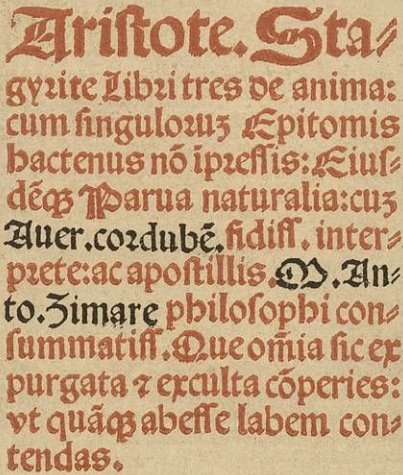 Ariſtote. Sta⸗
gyrite Libri tres de anima:
cum ſinguloruꝫ Epitomis
hactenus nõ ipreſſis: Eiuſ⸗
dẽqꝫ Parua naturalia: cuꝫ
Auer. cordubẽ. fidiſſ. inter⸗
prete: ac apoſtillis. M. An⸗
to. Zimare philoſophi con⸗
ſummatiſſ. Que om̃ia ſic ex
purgata ⁊ exculta cõperies:
vt quãqꝫ abeſſe labem con⸗
tendas.